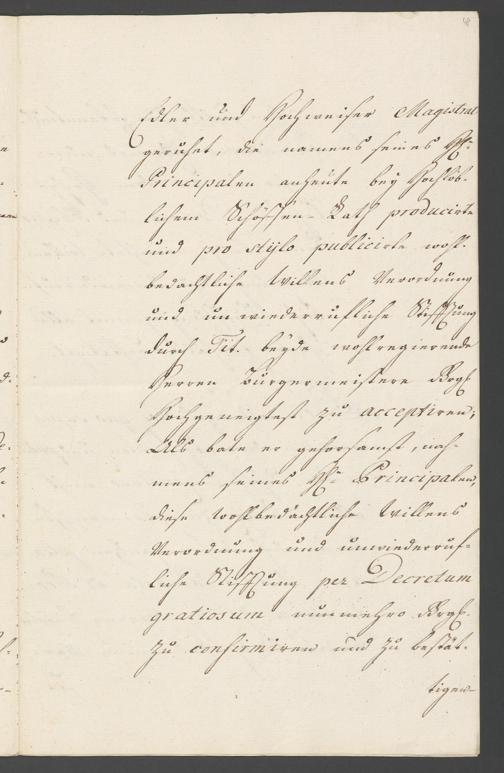 Edler und Hochweiser Magistrat
geruhet, die namens seines H:
Principalen anheute bey Hochlöb-
lichem Schöffen-Rath producirte
und pro stylo publicirte wohl-
bedächtliche Willens Verordnung
und unwiederrufliche Stifftung
durch Tit. beyde wohlregierende
Herren Bürgermeistere
Hochgeneigtest zu acceptiren;
Als bäte er gehorsamst, nah-
mens seines H: Principalen,
diese wohlbedächtliche Willens
Verordnung und unwiederruf-
liche Stifftung per Decretum
gratiosum nunmehro
zu confirmiren und zu bestät-
tigen